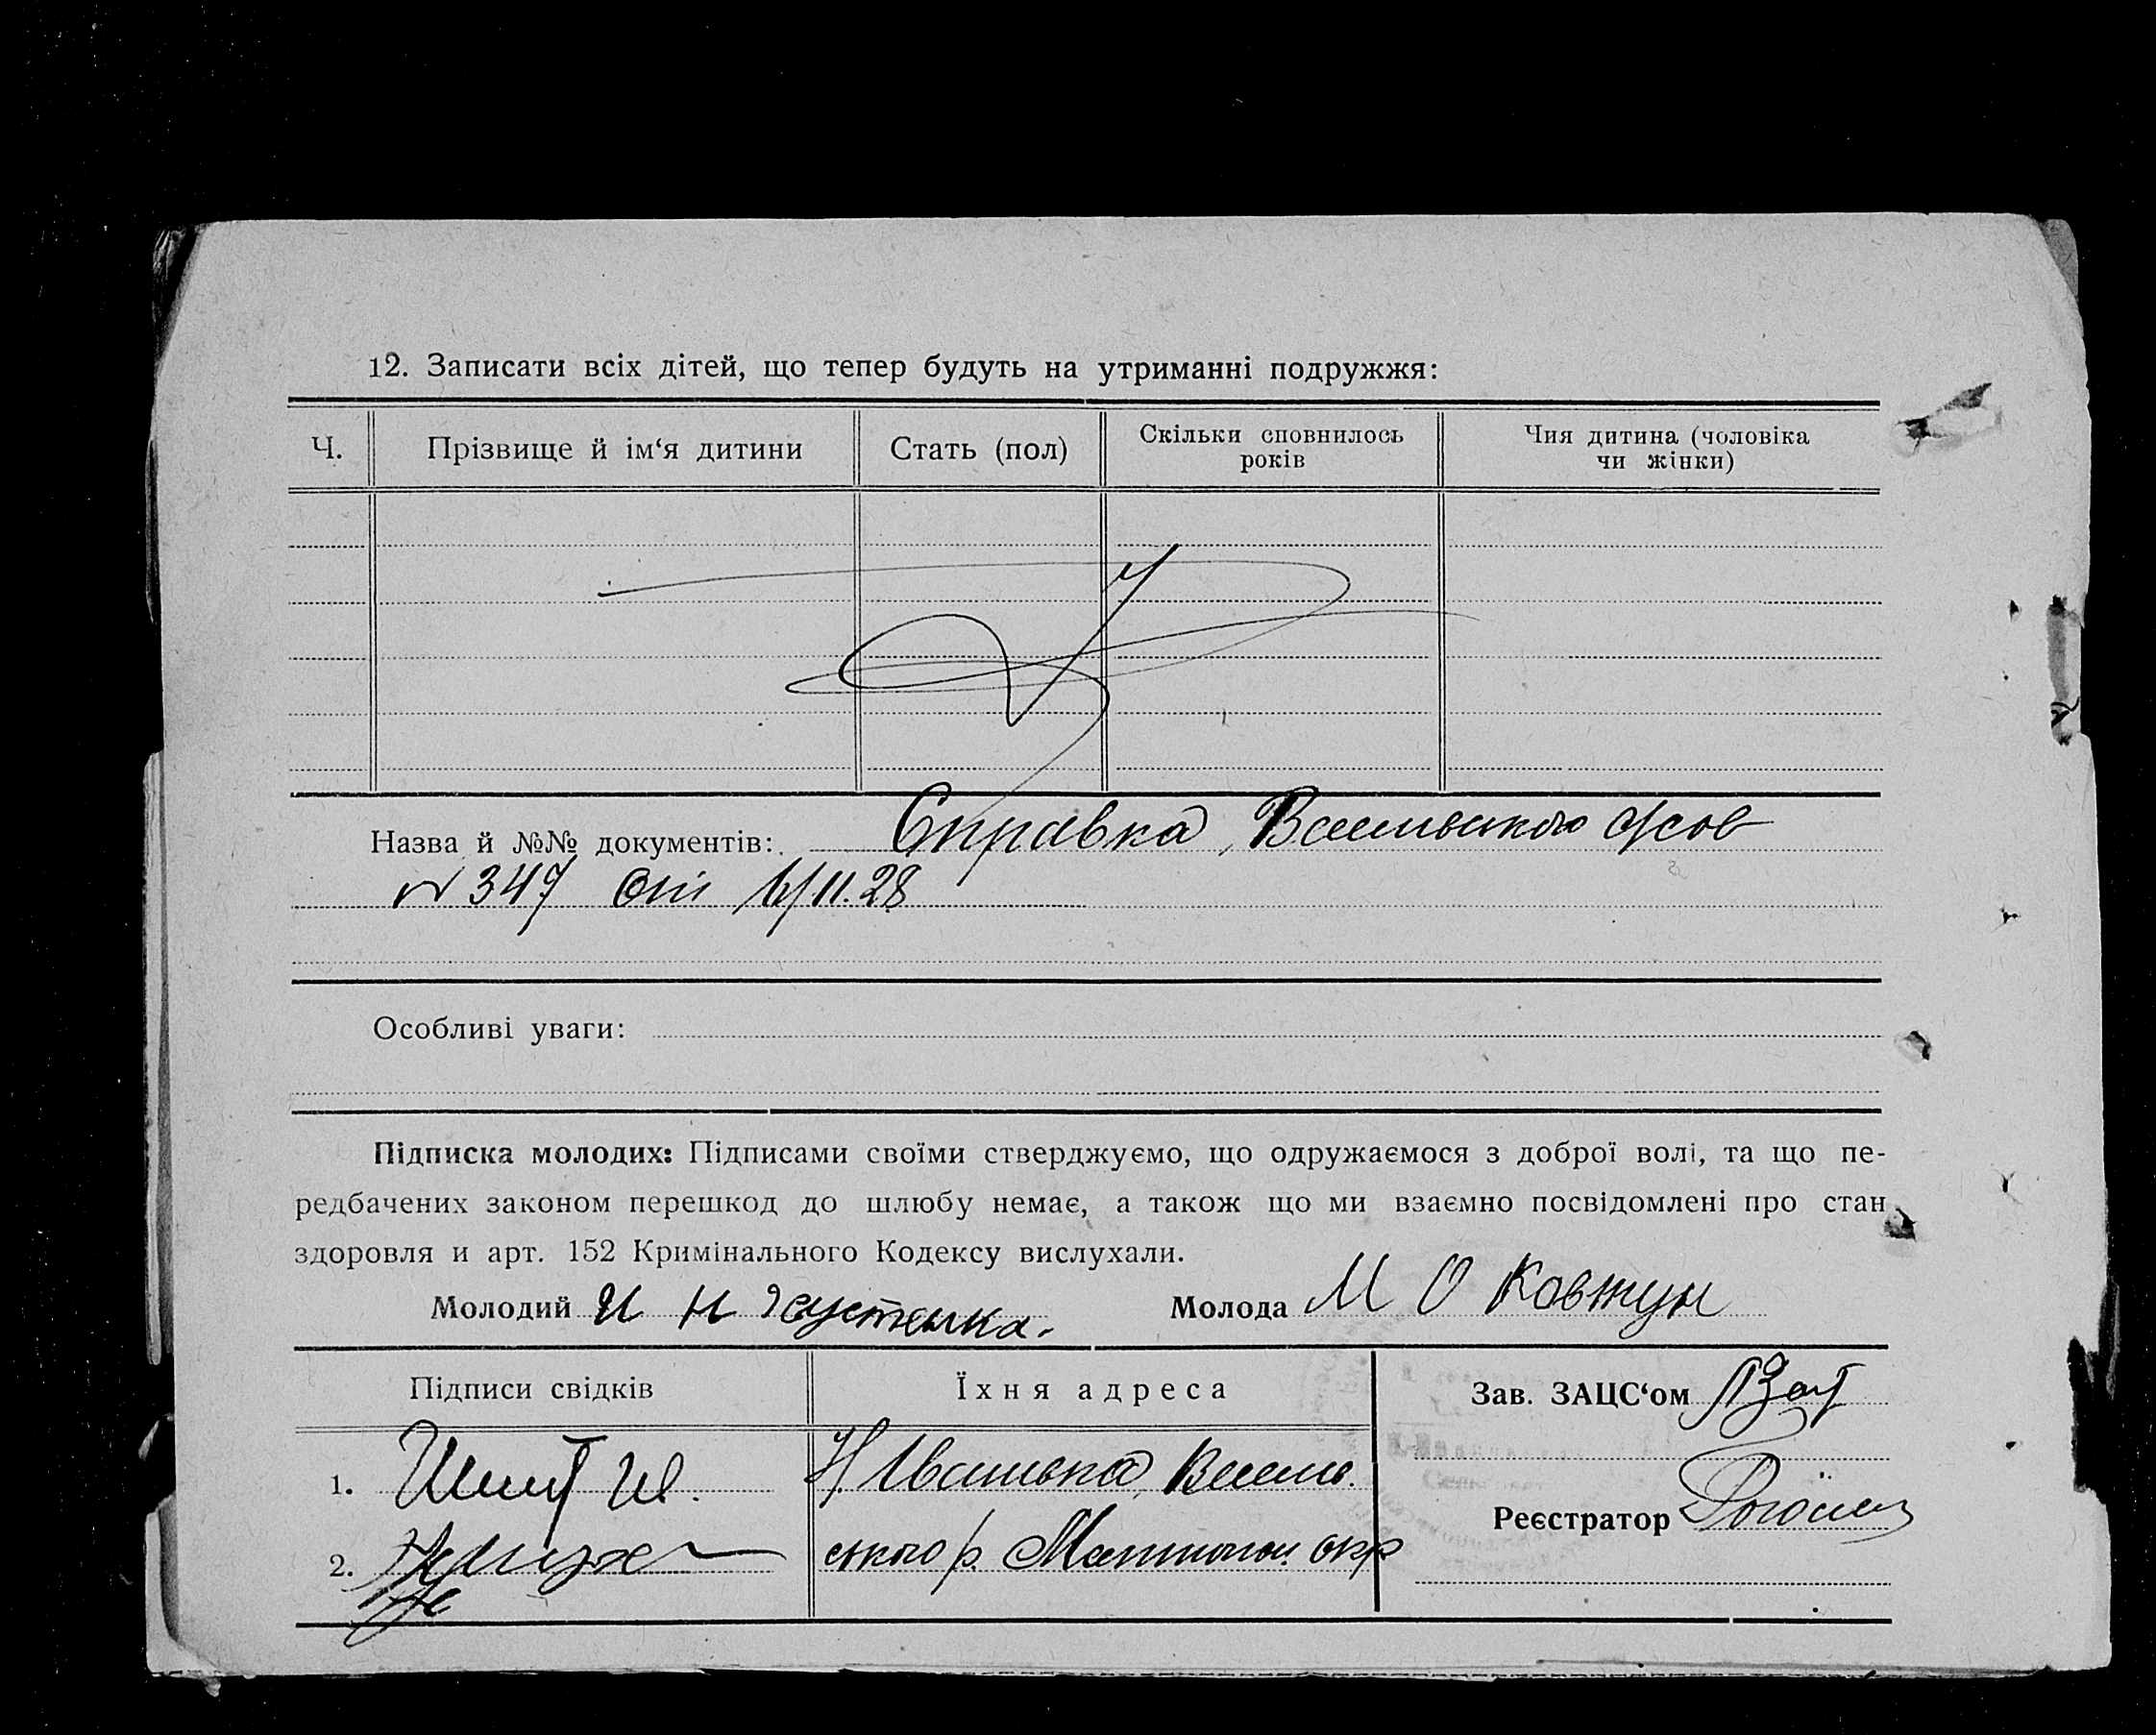 12. Записати всіх дітей, що тепер будуть на утриманні подружжя:
Ч. Прізвище й ім‘я дитини Стать (пол) Скільки сповнилось років Чия дитина (чоловіка чи жінки)
Назва й №№ документів: Справка,
№ 347 от 11.28
Особливі уваги:
Підписка молодих: Підписами своїми стверджуємо, що одружаємося з доброї волі, та що пе-
редбачених законом перешкод до шлюбу немає, а також що ми взаємно посвідомлені про стан
здоровля и арт. 152 Кримінального Кодексу вислухали.
Молодий И Н Молода М О Ковтун
Підписи свідків Їхня адреса Зав. ЗАЦС‘ом
1. Н. Ивановка,
2. ського р. окр
Реєстратор